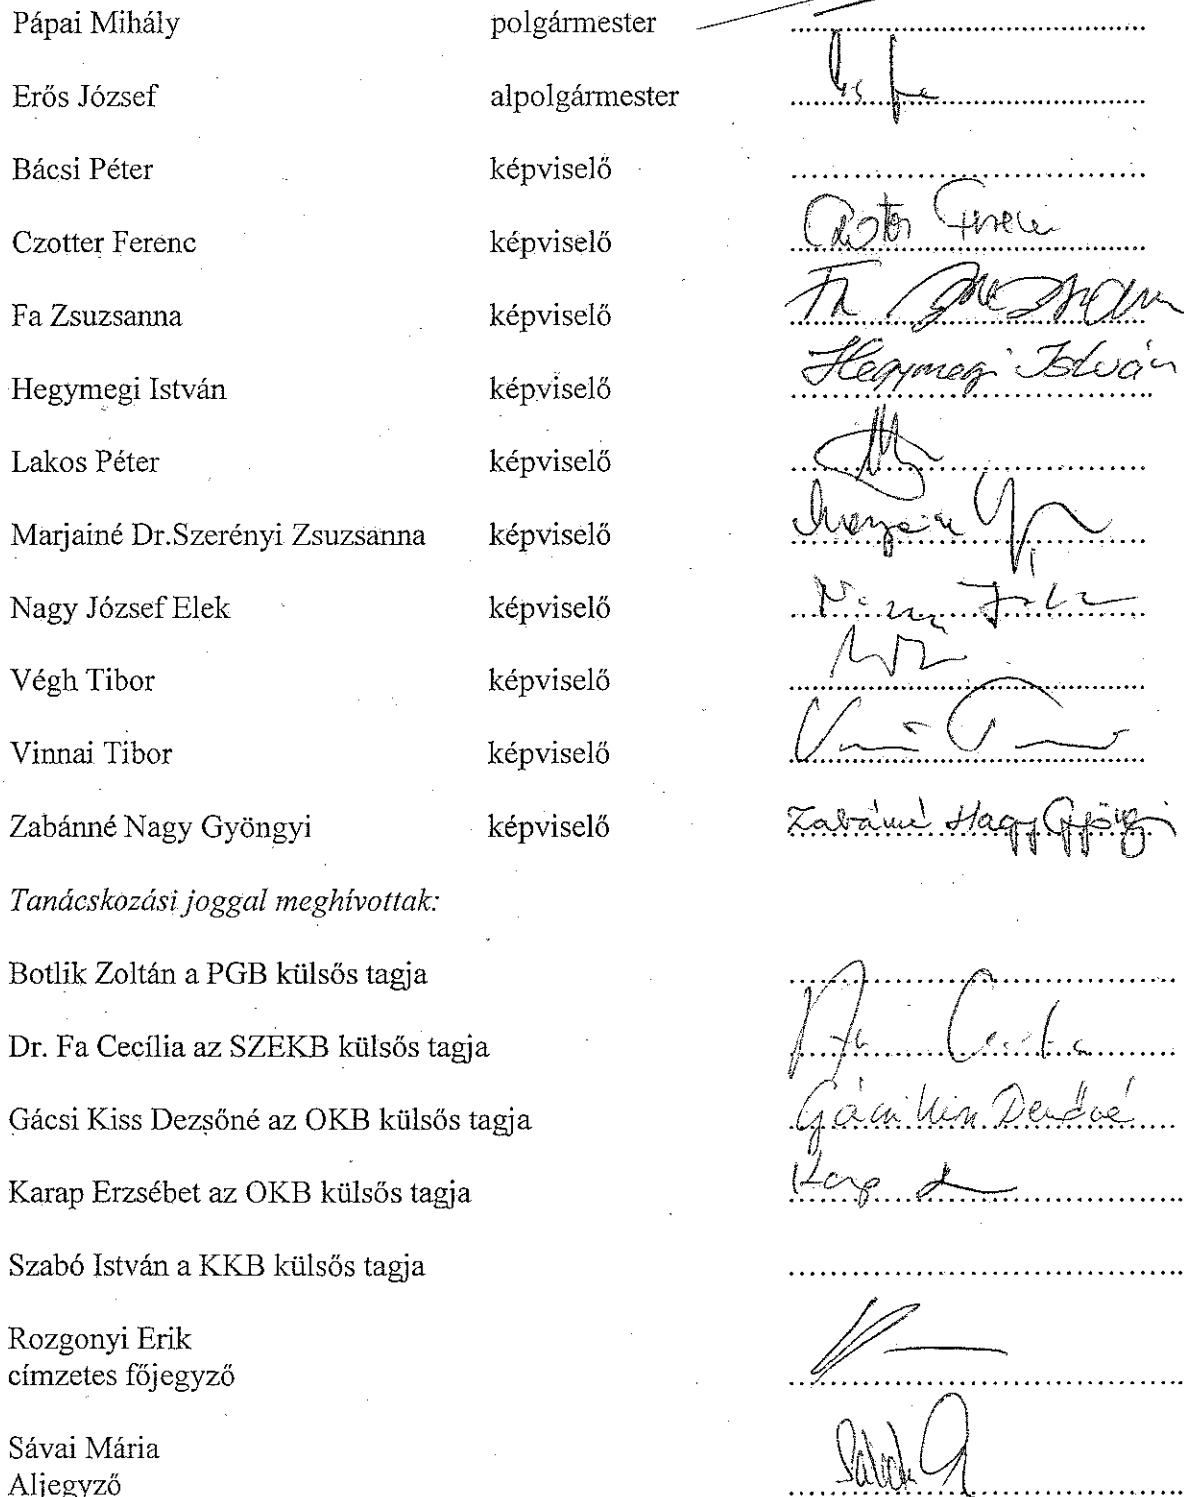 Pápai Mihály polgármester
Erős József alpolgármester
Bácsi Péter képviselő
Czotter Ferenc képviselő Ferenc
Fa Zsuzsanna képviselő Fa Zsuzsanna
Hegymegi István képviselő Hegymegi István
Lakos Péter képviselő
Marjainé Dr.Szerényi Zsuzsanna képviselő
Nagy József Elek képviselő
Végh Tibor képviselő
Vinnai Tibor képviselő
Zabánné Nagy Gyöngyi képviselő Zabánné Nagy Gyöngyi
Tanácskozási joggal meghívottak:
Botlik Zoltán a PGB külsős tagja
Dr. Fa Cecília az SZEKB külsős tagja
Gácsi Kiss Dezsőné az OKB külsős tagja Gácsi Kiss Dezsőné
Karap Erzsébet az OKB külsős tagja
Szabó István a KKB külsős tagja
Rozgonyi Erik
címzetes főjegyző
Sávai Mária
Aljegyző